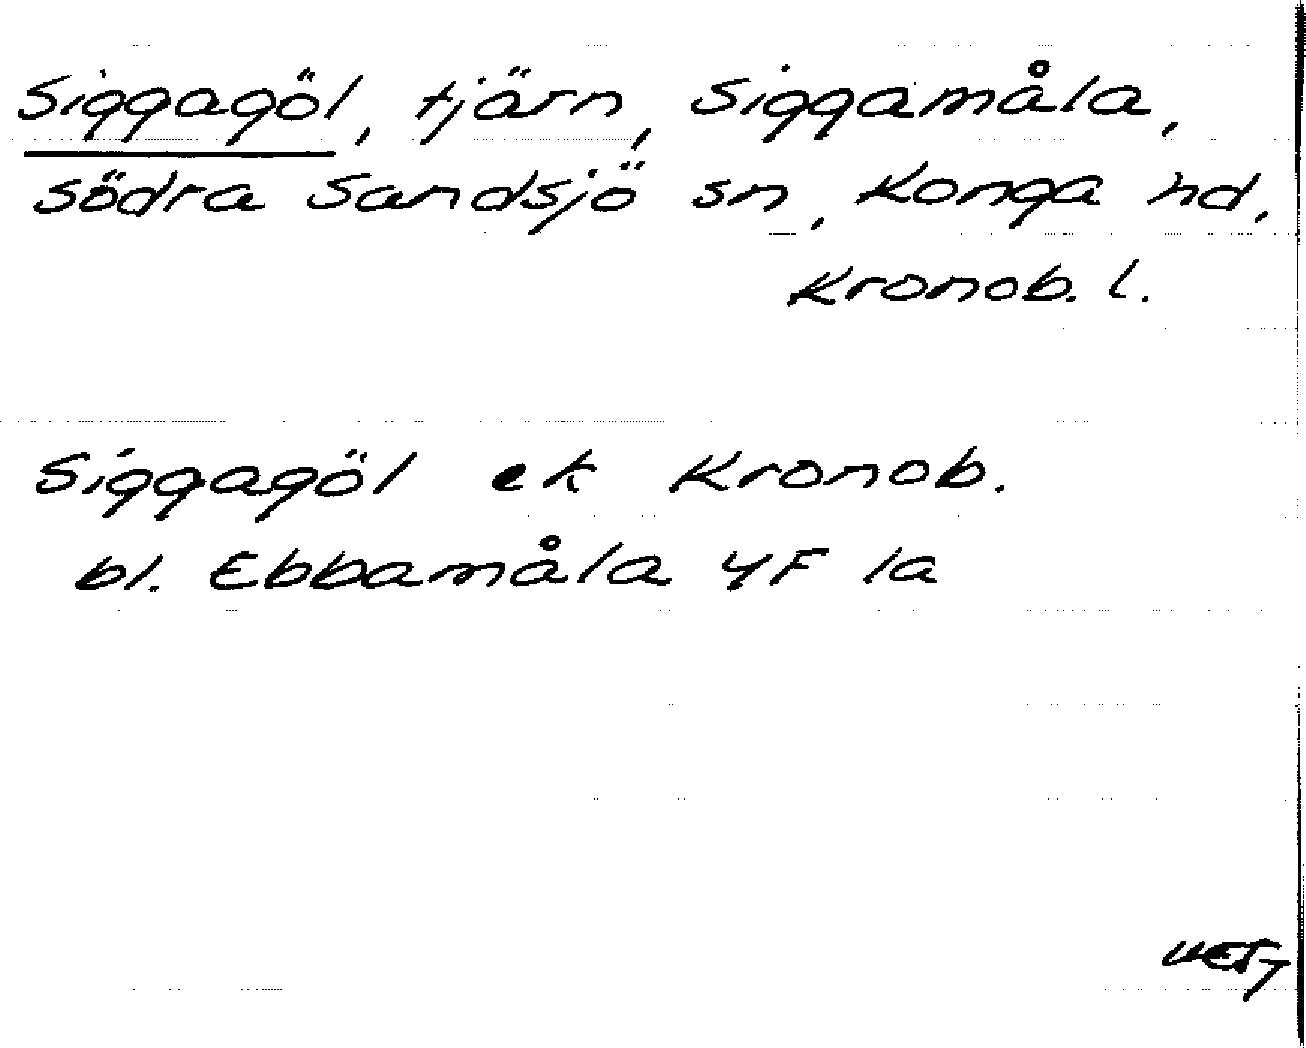 Siggagöl, tjärn, Siggamåla,
södra Sandsjö sn, Konga hd,
Kronob. l.
Siggagöl ek Kronob.
bl. Ebbamåla 4F 1a